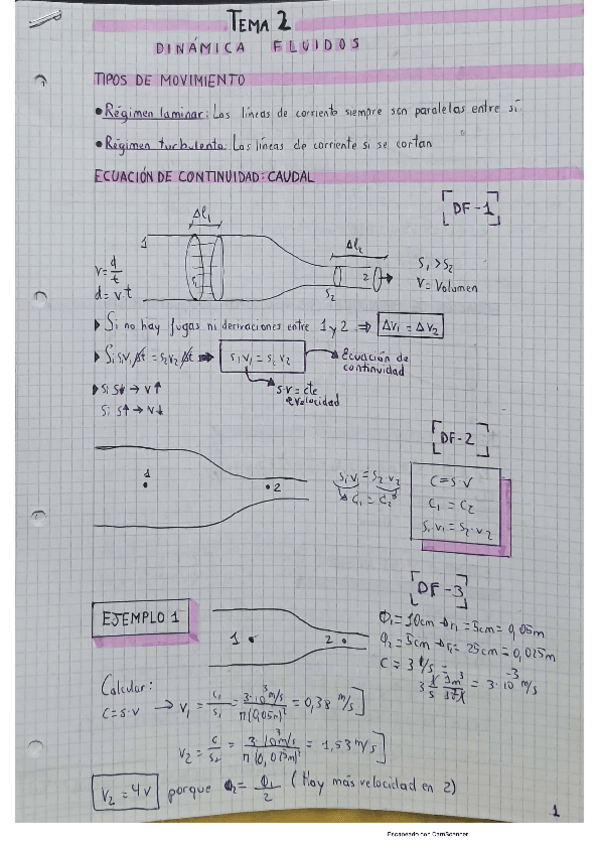 TEMA 2
DINÁMICA FLUIDOS
TIPOS DE MOVIMIENTO
• Régimen laminar: Las líneas de corriente siempre son paralelas entre sí
• Régimen turbulento: Las líneas de corriente si se cortan
ECUACIÓN DE CONTINUIDAD: CAUDAL
[DF-1]
Δl₁
Δl₂
1
v = d/t
d = v·t
S₁
S₂
2
S₁ > S₂
V = Volumen
▸ Si no hay fugas ni derivaciones entre 1 y 2 ⇒ ΔV₁ = ΔV₂
S₁v₁ = S₂v₂
Ecuación de continuidad
S·v = cte
velocidad
▸ Si S↓ → v↑
Si S↑ → v↓
[DF-2]
1
2
S₁v₁ = S₂·v₂
C₁ = C₂
C = S·V
C₁ = C₂
S₁·v₁ = S₂·v₂
[DF-3]
EJEMPLO 1
1
2
Φ₁ = 10cm → r₁ = 5cm = 0,05m
Φ₂ = 5cm → r₂ = 25cm = 0,025m
C = 3 l/s =
= 3·10⁻³ m/s
Calcular:
C = S·V → V₁ = C₁/S₁ = 3·10⁻³ m/s / π(0,05m)² = 0,38 m/s]
V₂ = C/S₂ = 3·10⁻³ m/s / π(0,025m)² = 1,53 m/s]
V₂ = 4V porque Φ₂ = Φ₁/2 (Hay más velocidad en 2)
1
Escaneado con CamScanner